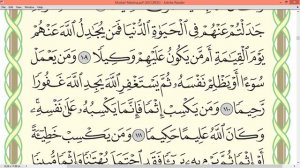 Mushaf Madinah.pdf (SECURED) - Adobe Reader
جَٰدَلْتُمْ عَنْهُمْ فِي ٱلْحَيَوٰةِ ٱلدُّنْيَا فَمَن يُجَٰدِلُ ٱللَّهَ عَنْهُمْ
يَوْمَ ٱلْقِيَٰمَةِ أَم مَّن يَكُونُ عَلَيْهِمْ وَكِيلًا ١٠٩ وَمَن يَعْمَلْ
سُوٓءًا أَوْ يَظْلِمْ نَفْسَهُۥ ثُمَّ يَسْتَغْفِرِ ٱللَّهَ يَجِدِ ٱللَّهَ غَفُورًا
رَّحِيمًا ١١٠ وَمَن يَكْسِبْ إِثْمًا فَإِنَّمَا يَكْسِبُهُۥ عَلَىٰ نَفْسِهِۦ
وَكَانَ ٱللَّهُ عَلِيمًا حَكِيمًا ١١١ وَمَن يَكْسِبْ خَطِيٓـَٔةً